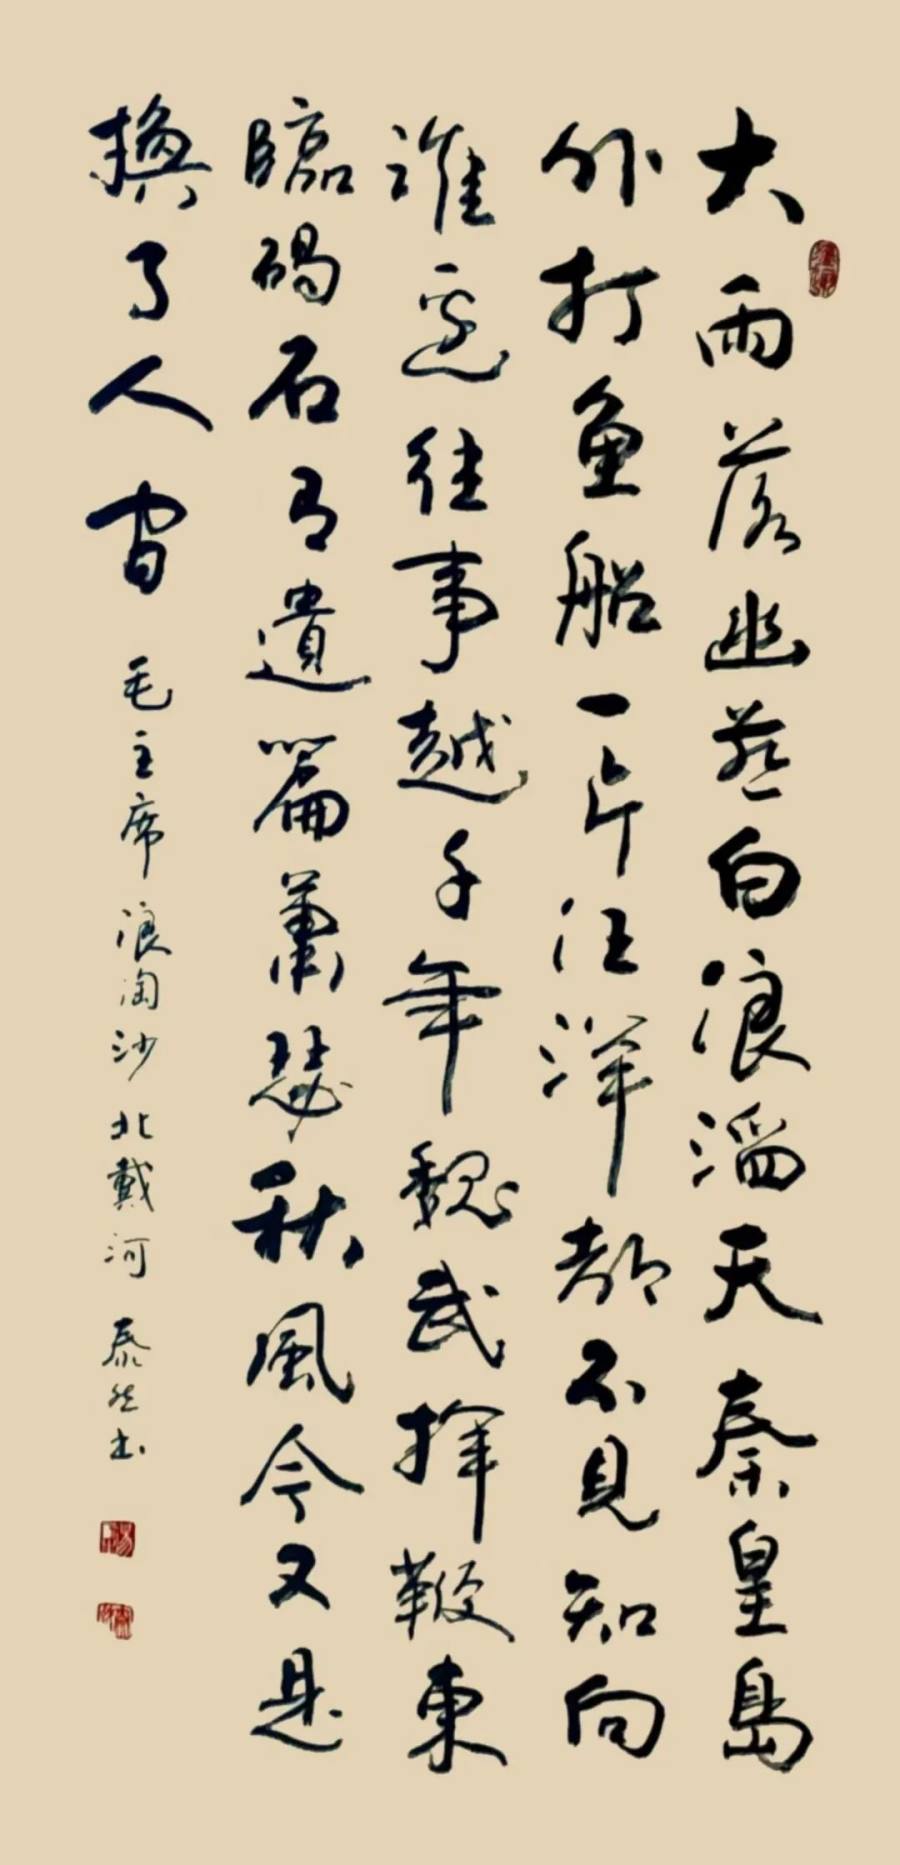 大雨落幽燕白浪滔天秦皇島
外打鱼船一片汪洋都不見知向
誰邊往事越千年魏武揮鞭東
臨碣石有遺篇蕭瑟秋風今又是
換了人間 毛主席浪淘沙北戴河 泰然书